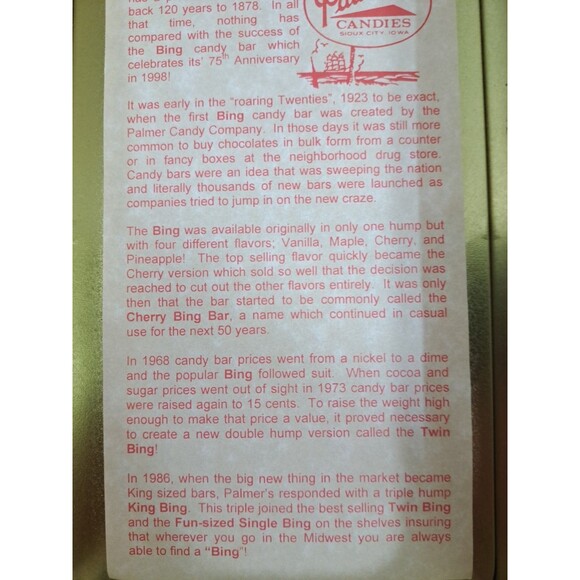 back 120 years to 1878. In all
that time, nothing has
compared with the success of
the Bing candy bar which
celebrates its' 75th Anniversary
in 1998!
CANDIES
SIOUX CITY, IOWA
It was early in the "roaring Twenties", 1923 to be exact,
when the first Bing candy bar was created by the
Palmer Candy Company. In those days it was still more
common to buy chocolates in bulk form from a counter
or in fancy boxes at the neighborhood drug store.
Candy bars were an idea that was sweeping the nation
and literally thousands of new bars were launched as
companies tried to jump in on the new craze.
The Bing was available originally in only one hump but
with four different flavors; Vanilla, Maple, Cherry, and
Pineapple! The top selling flavor quickly became the
Cherry version which sold so well that the decision was
reached to cut out the other flavors entirely. It was only
then that the bar started to be commonly called the
Cherry Bing Bar, a name which continued in casual
use for the next 50 years.
In 1968 candy bar prices went from a nickel to a dime
and the popular Bing followed suit. When cocoa and
sugar prices went out of sight in 1973 candy bar prices
were raised again to 15 cents. To raise the weight high
enough to make that price a value, it proved necessary
to create a new double hump version called the Twin
Bing!
In 1986, when the big new thing in the market became
King sized bars, Palmer's responded with a triple hump
King Bing. This triple joined the best selling Twin Bing
and the Fun-sized Single Bing on the shelves insuring
that wherever you go in the Midwest you are always
able to find a "Bing"!